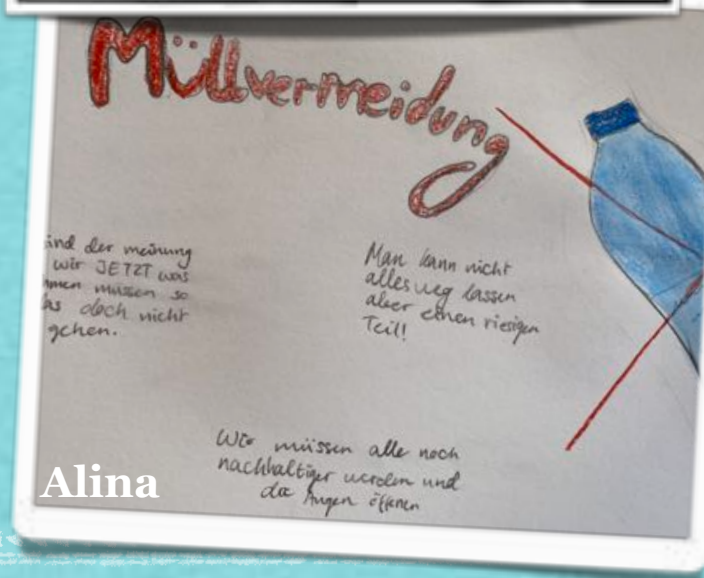 Müllvermeidung
ind der meinung
wir JETZT was
men müssen so
as doch nicht
gehen.
Man kann nicht
alles weg lassen
aber einen riesigen
Teil!
Wir müssen alle noch
nachhaltiger werden und
die Augen öffenen
Alina